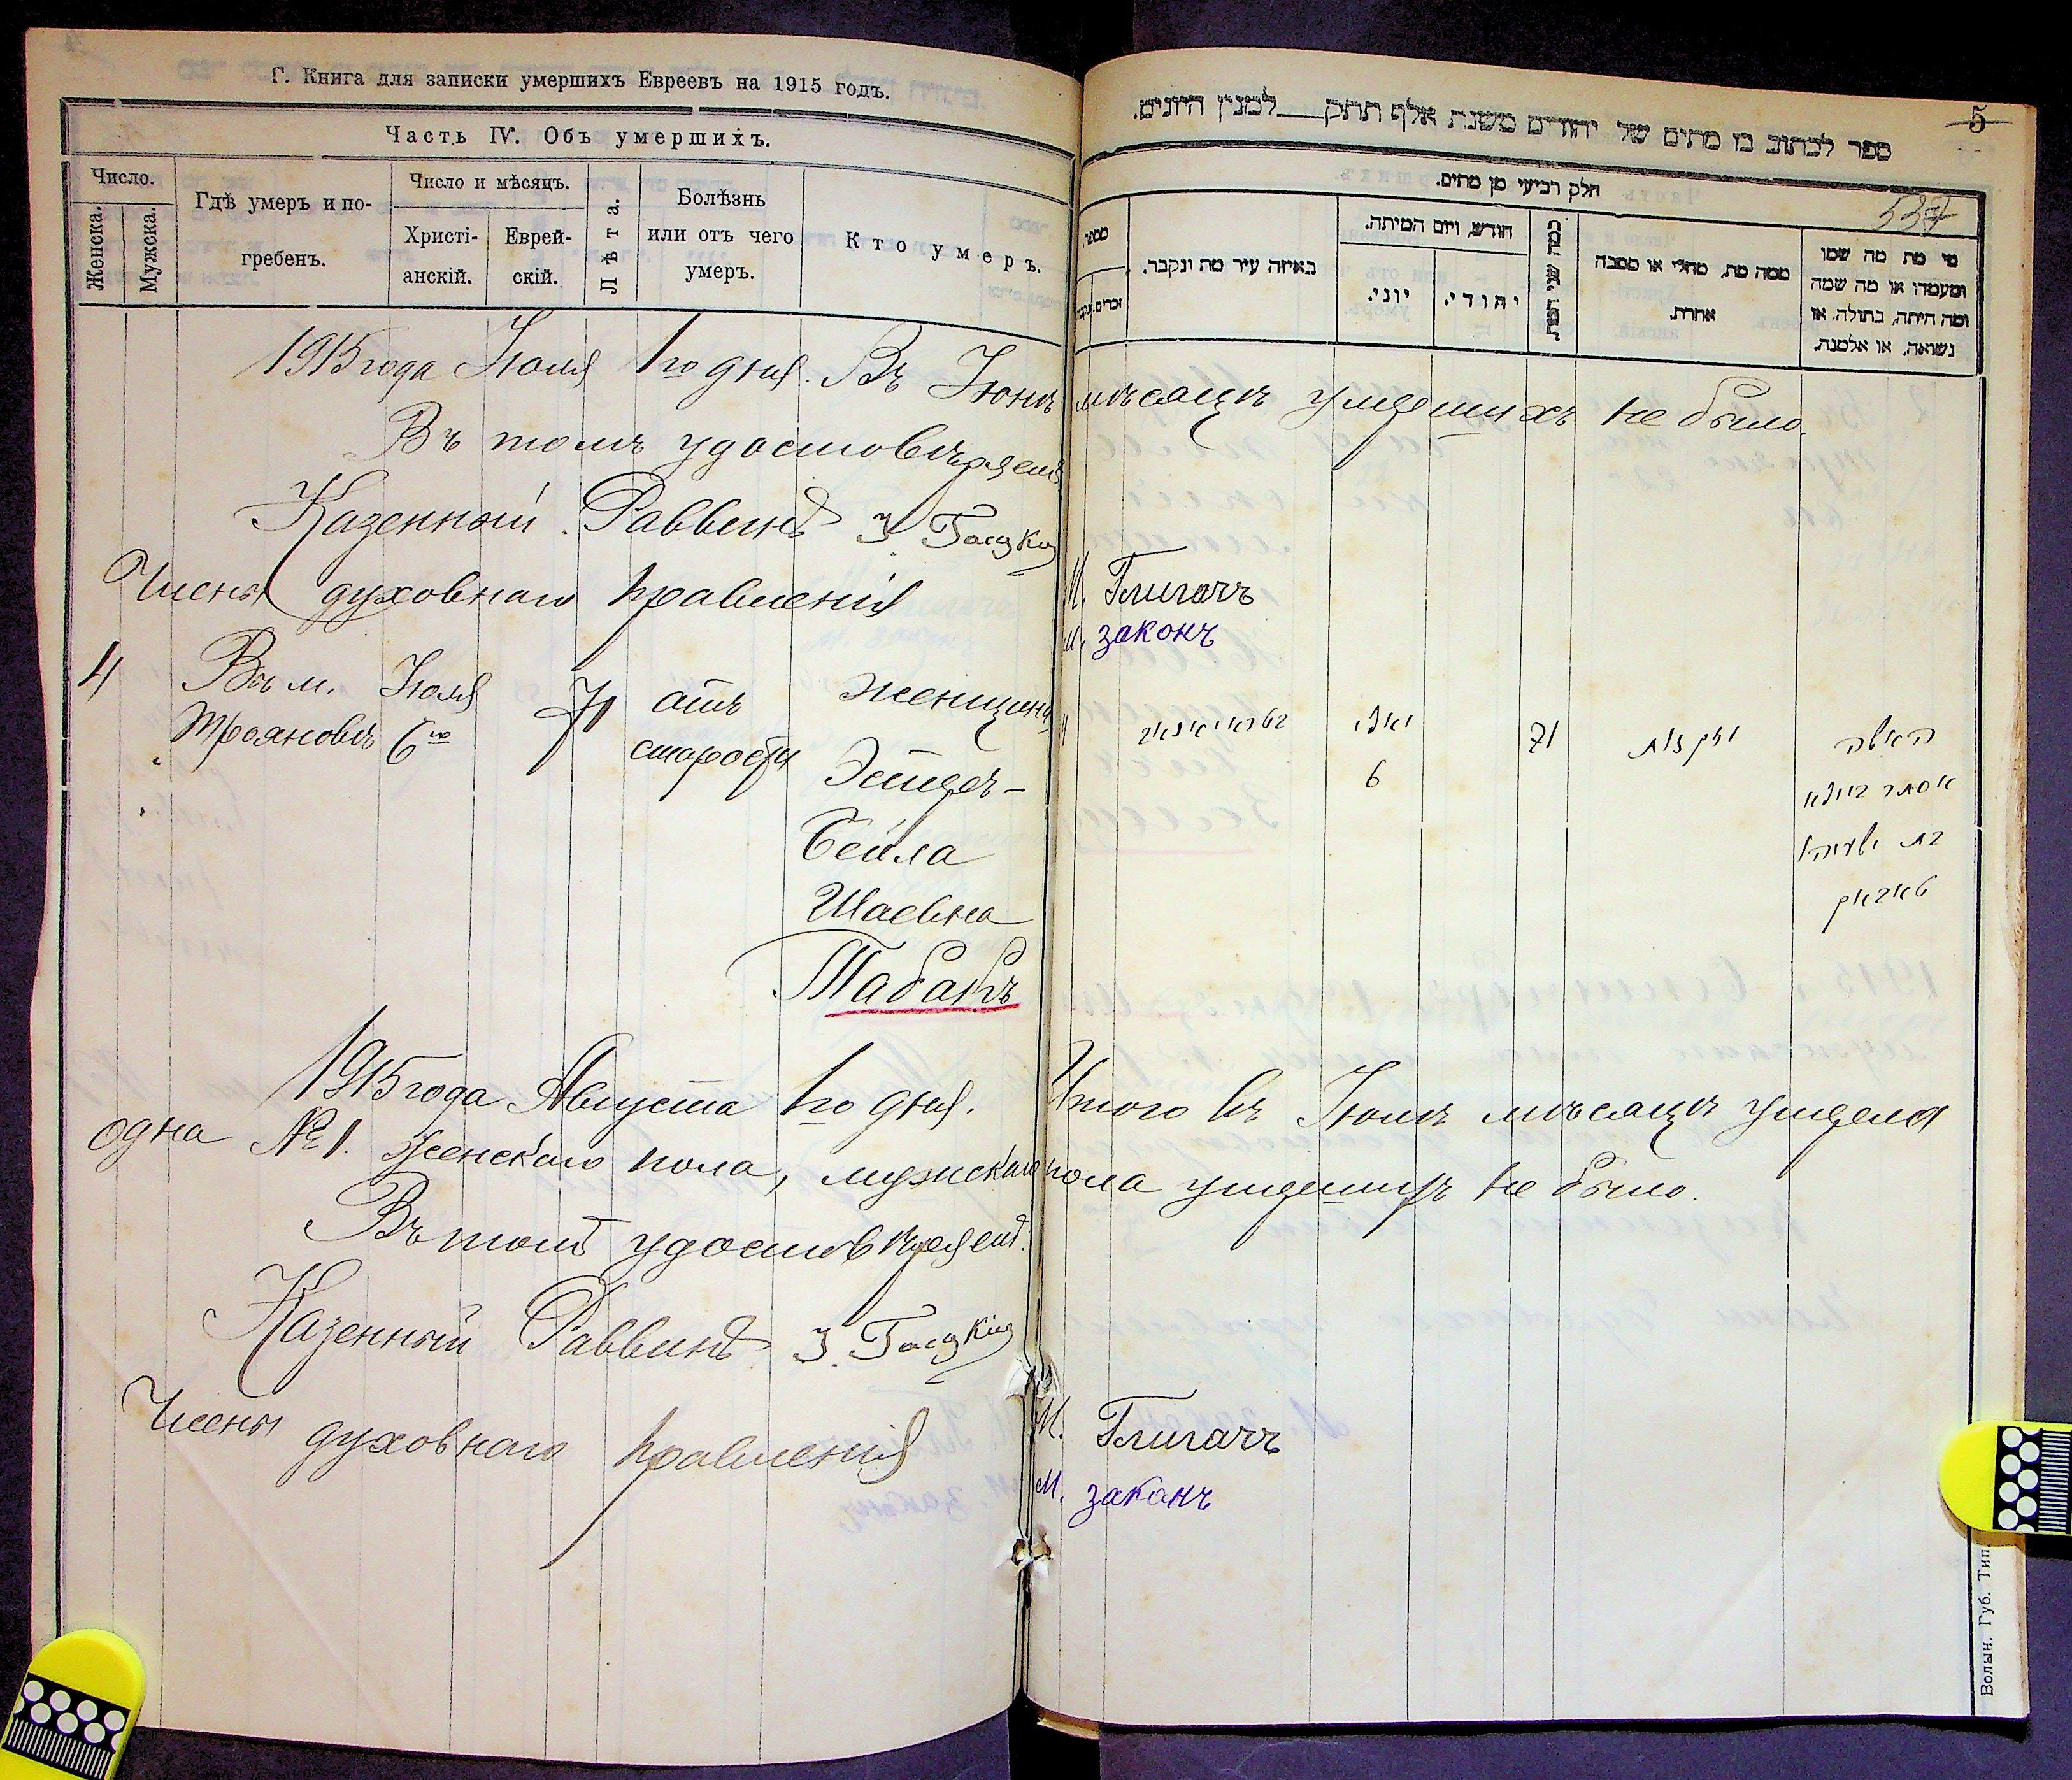 Г. Книга для записки умершихъ Евреевъ на 1915 годъ.
Часть IV. Объ умершихъ.
Число.
Женска.
Мужска.
Гдѣ умеръ и по-
гребенъ.
Число и мѣсяцъ.
Христі-
анскій.
Еврей-
скій.
Лѣта.
Болѣзнь
или отъ чего
умеръ.
Кто умеръ.
5
ספר לכתוב בו מתים של יהודים משנת אלף תתק למנין היונים.
537
חלק רביעי מן מתים.
מספר.
זכרים.
באיזה עיר מת ונקבר.
חודש, ויום המיתה.
יוני.
יהודי.
כמה שני המת
ממה מת, מחלי או מסבה
אחרת.
מי מת מה שמו
ומעמדו או מה שמה
ומה היתה, בתולה, או
נשואה, או אלמנה.
1915 года Іюля 1го дня. Въ Іюнѣ мѣсяцѣ умершихъ не было.
Въ томъ удостовѣряемъ
Казенный Раввинъ З.
Члены духовнаго правленія М. Глигачъ
М. законъ
4 Въ м. Трояновѣ Іюля 6го 71 отъ старости Женщина
Эстеръ-
Бейла
Шаевна
Табакъ
4 בטראיאנאוו יאלי 6 71 מזקנות האשה
אסתר ביילא
בת ישעיהו
טאבאק
1915 года Августа 1го дня. Итого въ Іюлѣ мѣсяцѣ умерла
одна №1. женскаго пола, мужскаго пола умершихъ не было.
Въ томъ удостовѣряемъ
Казенный Раввинъ З.
Члены духовнаго правленія М. Глигачъ
М. законъ
Волын. Губ. Тип.